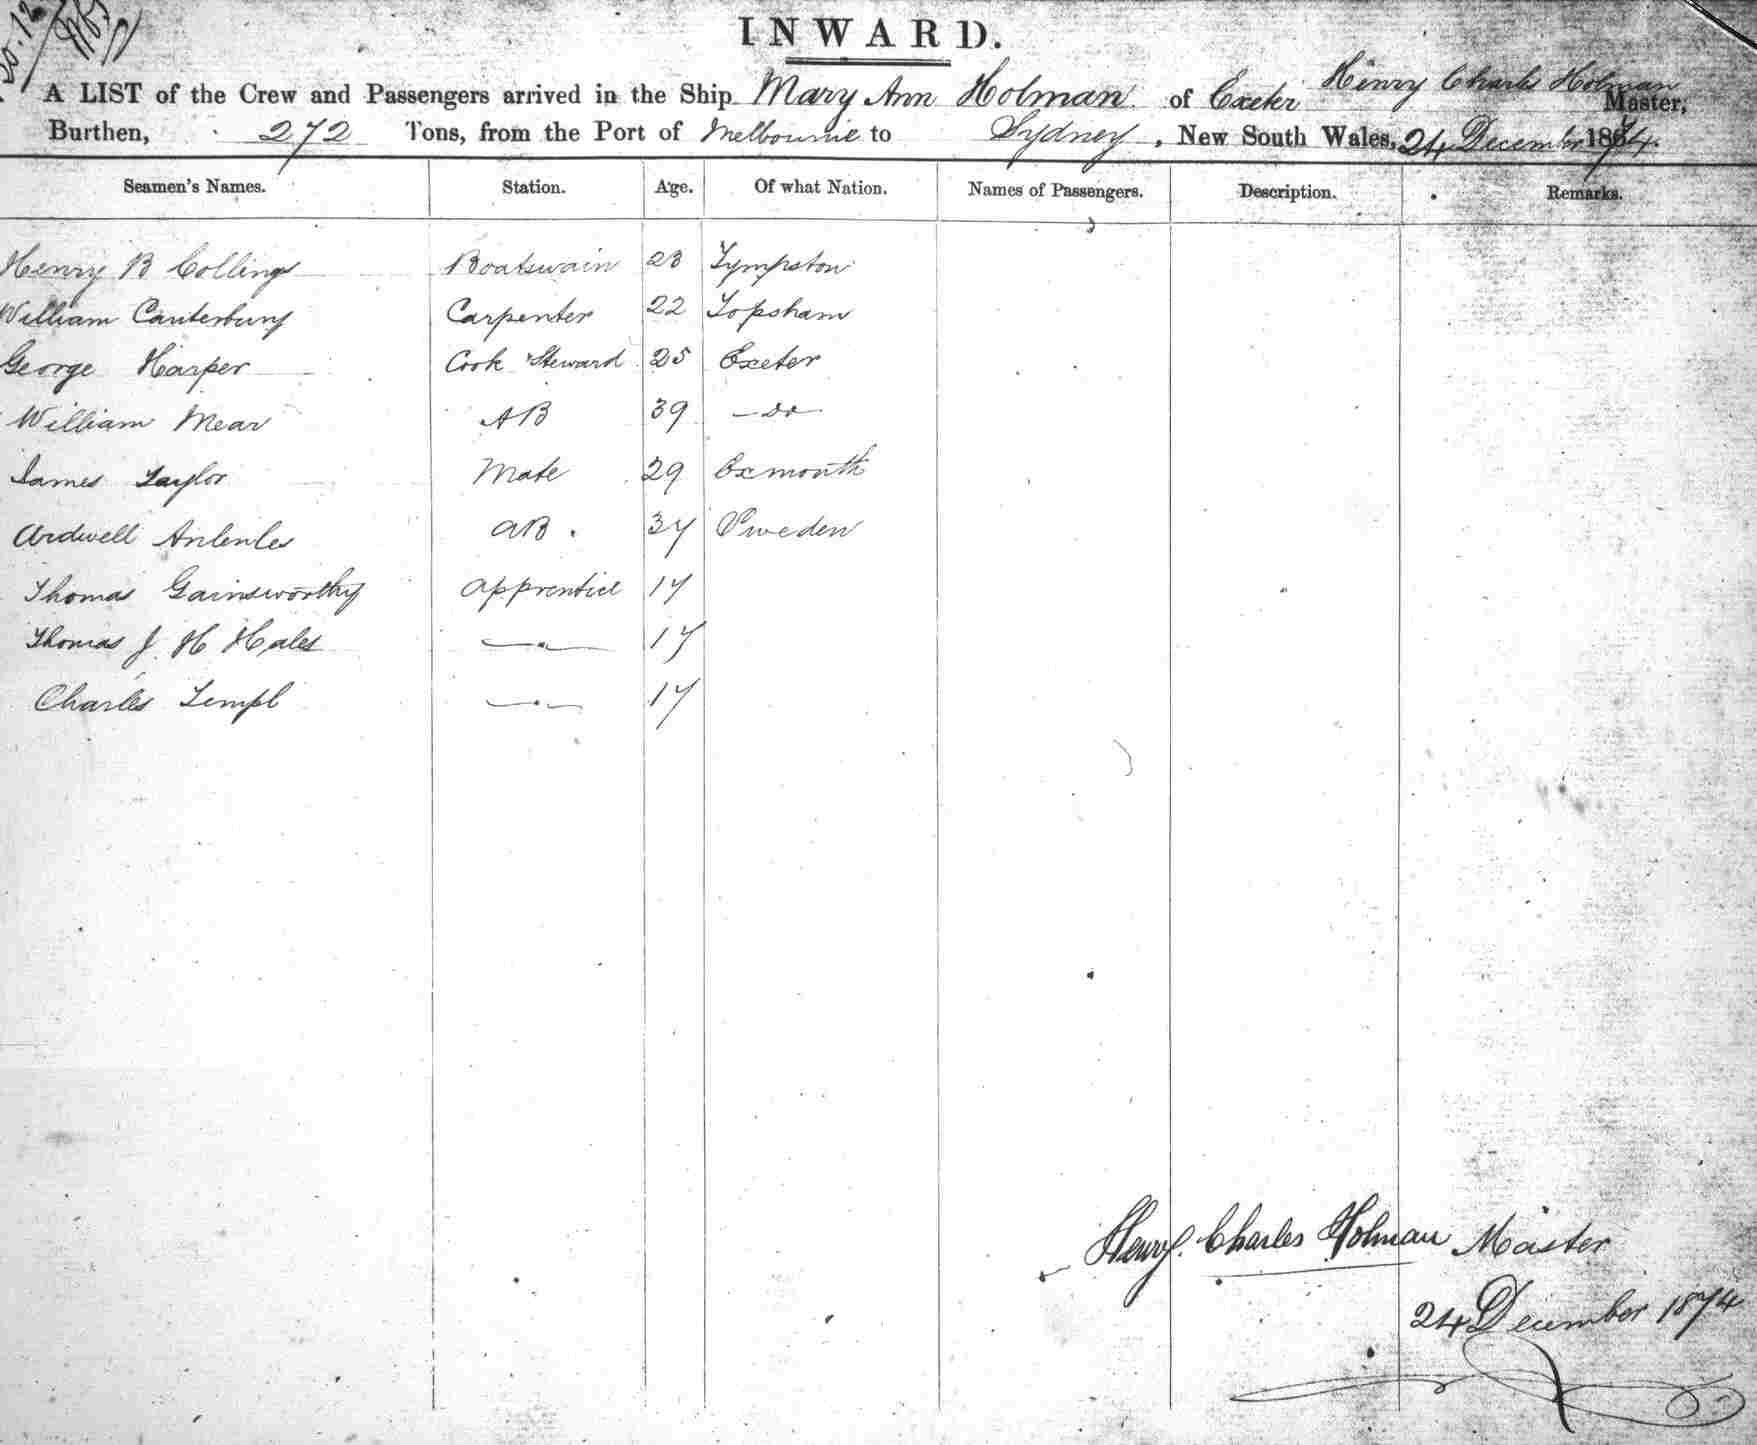 INWARD.
A LIST of the Crew and Passengers arrived in the Ship Mary Ann Holman of Exeter Henry Charles Holman Master,
Burthen, 272 Tons, from the Port of Melbourne to Sydney, New South Wales, 24 December 1874.
Seamen's Names. Station. Age. Of what Nation. Names of Passengers. Description. Remarks.
Henry B Collings Boatswain 23 Lympston
William Canterbury Carpenter 22 Topsham
George Harper Cook Steward 25 Exeter
William Mear AB 39 - Do -
James Taylor Mate 29 Exmouth
Ardwell AB 37 Sweden
Thomas Gainsworthy apprentice 17
Thomas J. H Hales —"— 17
Charles Templ —"— 17
Henry. Charles Holman Master
24 December 1874